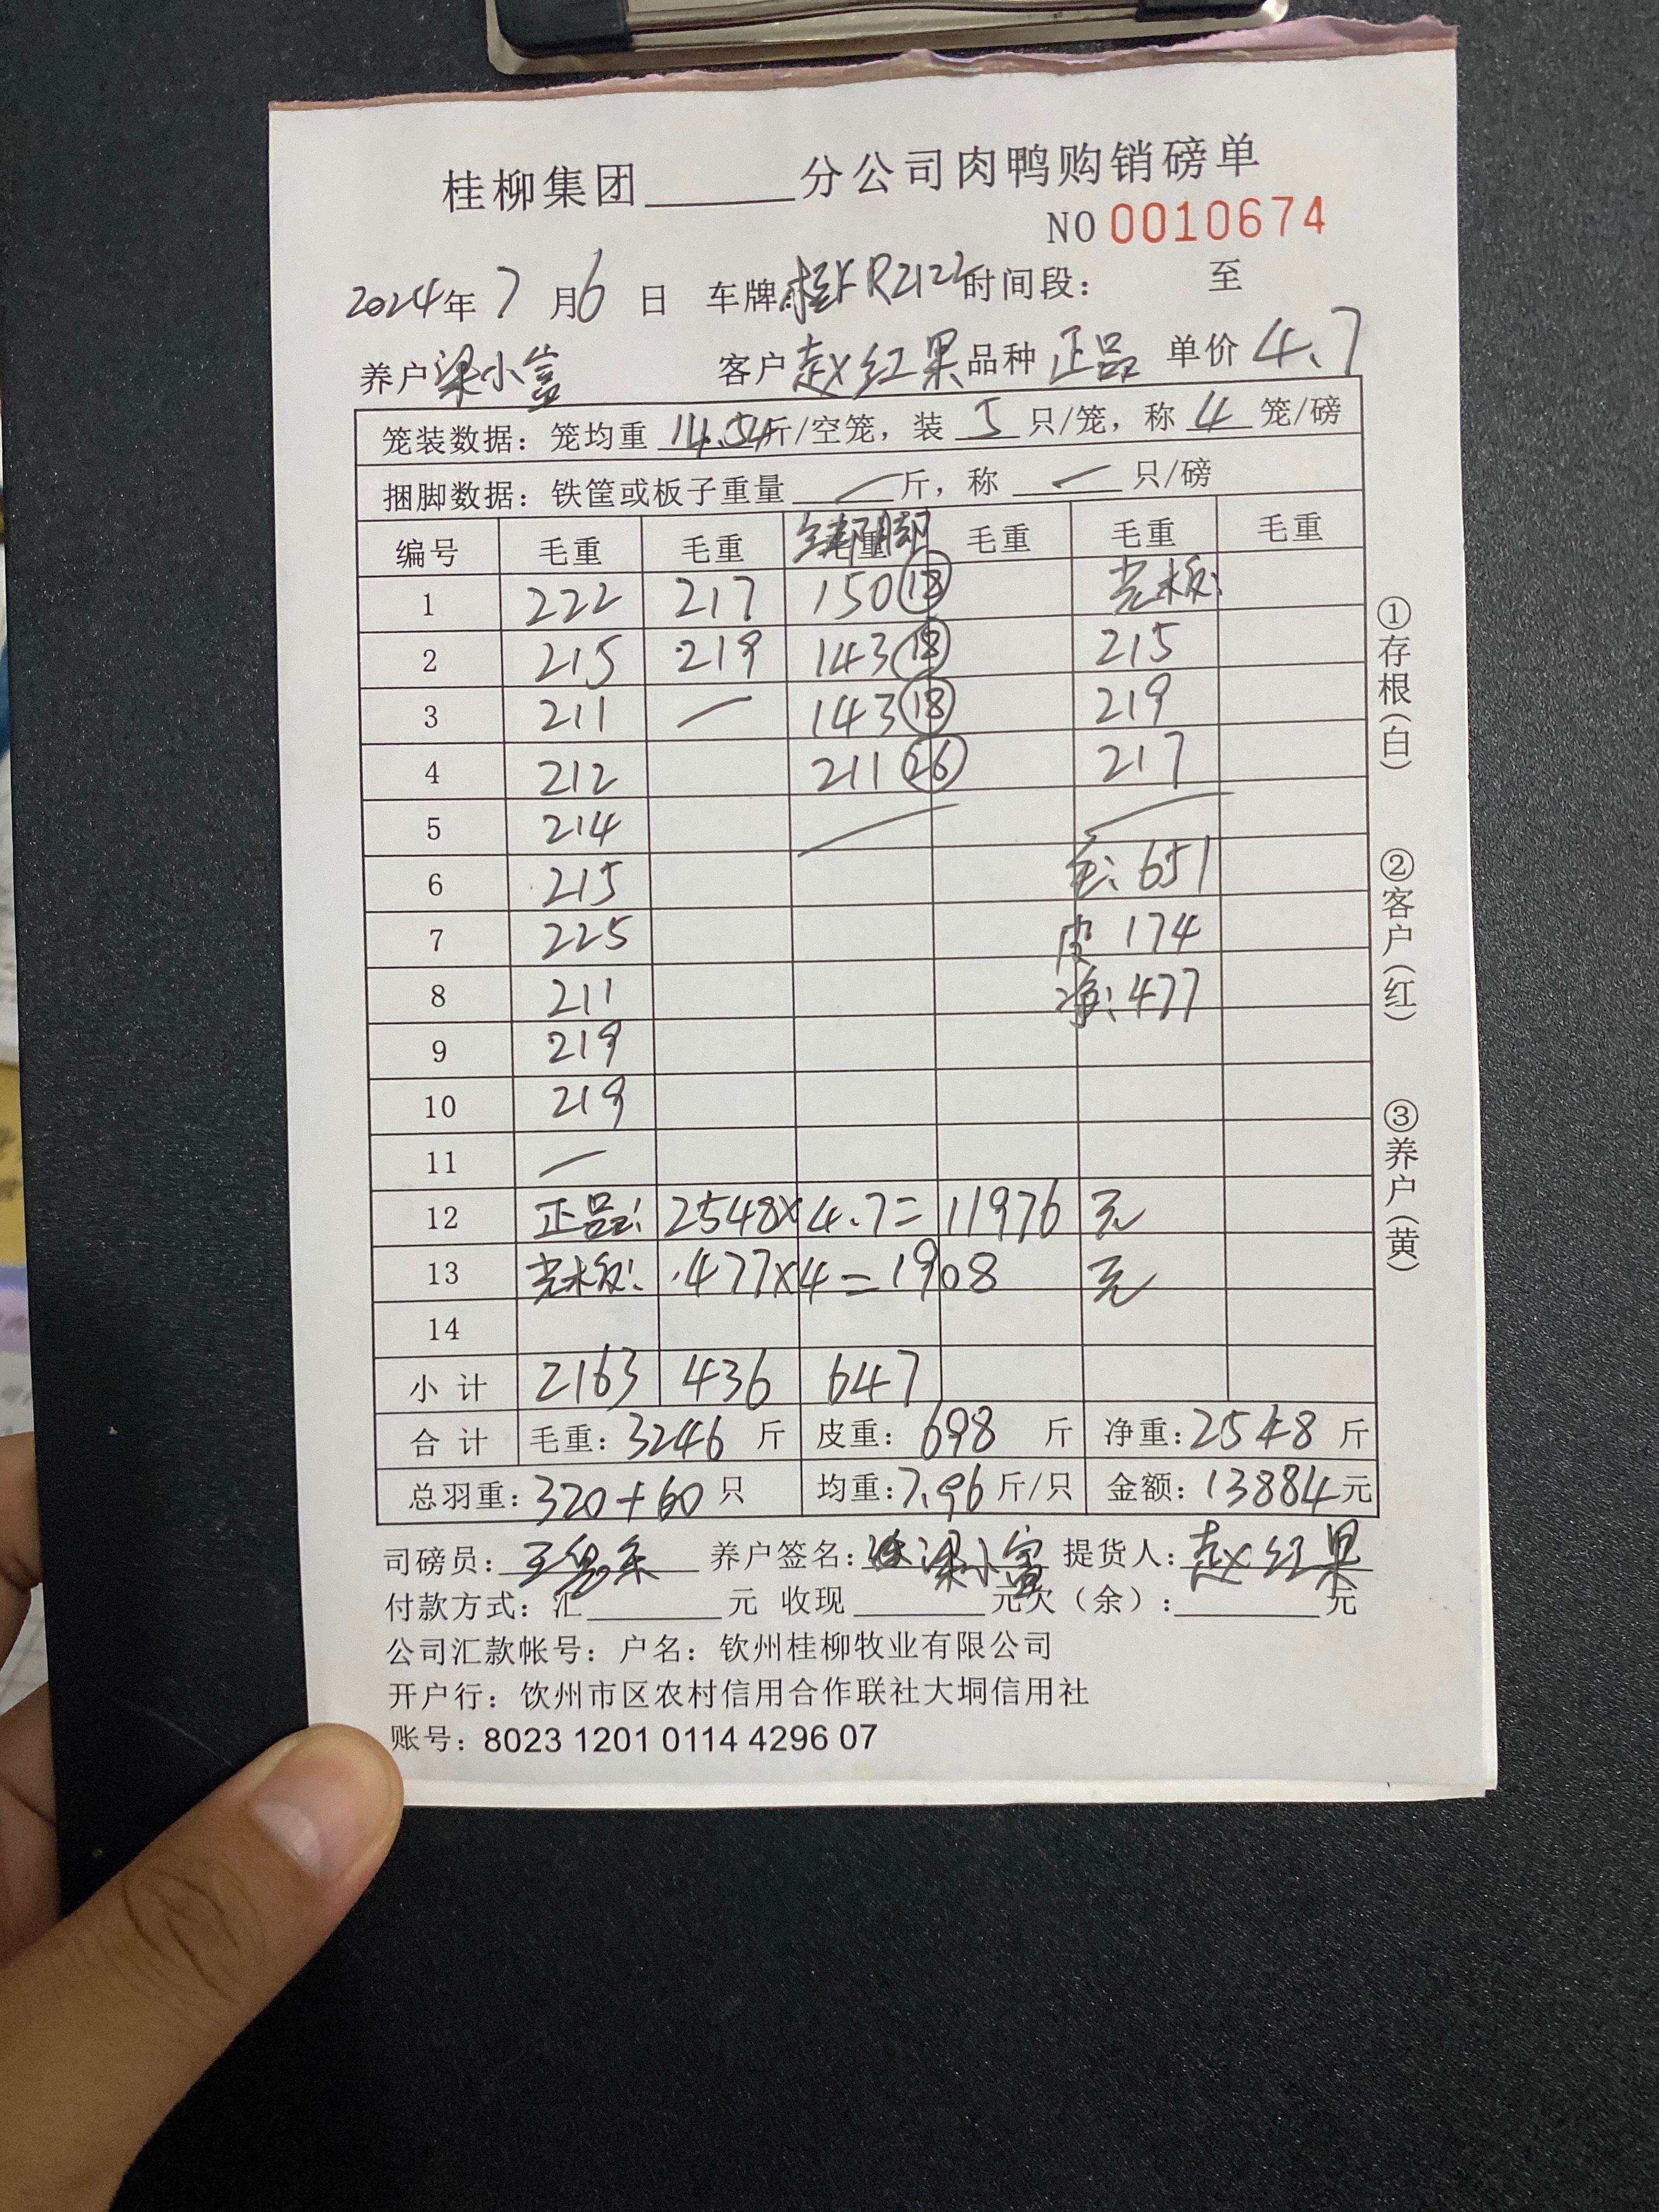 桂柳集团______分公司肉鸭购销磅单
NO 0010674
2024年 7 月 6 日 车牌: R2122 时间段: 至
养户 梁小富 客户 赵红果 品种 正品 单价 4.7
笼装数据: 笼均重 14.54 斤/空笼, 装 5 只/笼, 称 4 笼/磅
捆脚数据: 铁筐或板子重量 — 斤, 称 — 只/磅
编号 毛重 毛重 毛重 毛重 毛重 毛重
1 222 217 150 (18) 光板:
2 215 219 143 (18) 215
3 211 — 143 (18) 219
4 212 211 (26) 217
5 214
6 215 毛: 651
7 225 皮 174
8 211 净: 477
9 219
10 219
11 —
12 正品: 2548×4.7= 11976 元
13 光板: 477×4=1908 元
14
小计 2163 436 647
合计 毛重: 3246 斤 皮重: 698 斤 净重: 2548 斤
总羽重: 320+60 只 均重: 7.96 斤/只 金额: 13884 元
司磅员: 养户签名: 梁小富 提货人: 赵红果
付款方式: 汇______元 收现______元欠(余):______元
公司汇款帐号: 户名: 钦州桂柳牧业有限公司
开户行: 钦州市区农村信用合作联社大垌信用社
账号: 8023 1201 0114 4296 07
①存根(白) ②客户(红) ③养户(黄)